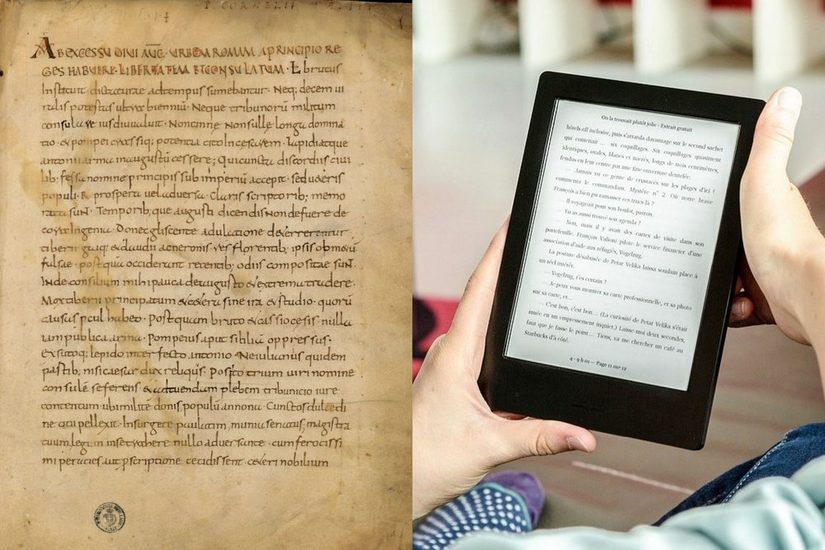 P. CORNELII
AB EXCESSU DIVI AUG. URBEM ROMAM APRINCIPIO RE
GES HABUERE. LIBERTATEM ET CONSULATUM. L. brutus
Instituit. dictaturae adtempus sumebantur. Neq; decem ui
ralis potestas ultra biennium. Neque tribunorum militum
consulare ius diu ualuit. Non cinne. Non sulle longa domina
pompei crassiq; potentia cito Incesarem. Lepidi atque
antonii arma inaugustum cessere; qui cuncta discordiis ciui
lib; fessa nomine principis sub imperium accepit. sed ueteris
populi. R. prospera uel aduersa. Claris scriptorib; memo
rata sunt. Temporib; que augusti dicendis non defuere de
cora Ingenia. Donec gliscente adulatione
tiberii gaiq; & claudii ac neronis. res florentib; ipsis ob metum
falsae. postquam occiderant recentib; odiis compositae sunt.
Inde consilium mihi pauca de augusto & extrema tradere.
Mox tiberii principatum & cetera sine ira & studio. quorum
causas procul habeo. Postquam bruto & cassio cesis. nulla
iam publica arma. Pompeius apud siciliam oppressus.
exutoq; lepido interfecto antonio
partib; nisi caesar dux reliquus. Posito trium uiri nomine
consulem se ferens & adtuendam plebem tribunicio iure
contentum ubi militem donis. populum annona. Cunctos dulcedi
ne otii pellexit. Insurgere paulatim. munia senatus. magistra
tuum legum in se trahere nullo aduersante. cum ferocissi
mi per acies. aut proscriptione cecidissent. ceteri nobilium
On la trouvait plutôt jolie - Extrait gratuit
hôtels all inclusive, puis s'attarda davantage sur le second sachet
qui contenait … six coquillages. Six coquillages quasiment
identiques, ovales, blancs et nacrés, longs de trois centimètres,
fendus en leur centre par une fine ouverture dentelée.
— Jamais vu ce genre de crustacés sur les plages d'ici !
commenta le commandant. Mystère n° 2. Où notre brave
François a bien pu ramasser ces trucs-là ?
— Il voyageait pour son boulot, patron.
— Tu as aussi trouvé son agenda ?
— Non, mais il y avait des cartes de visite dans son
portefeuille. François Valioni pilote le service financier d'une
association d'aide aux réfugiés, Vogelzug.
La posture désabusée de Petar Velika laissa soudain place à
un réel intérêt.
— Vogelzug, t'es certain ?
— Je peux vous montrer sa carte professionnelle, et sa photo
sur sa carte, et…
— C'est bon, c'est bon… (La curiosité de Petar Velika s'était
muée en un empressement inquiet.) Laisse-moi deux secondes,
faut que je fasse le point… Tiens, va me chercher un café au
Starbucks d'à côté.
4 - 9 h 01 — Page 11 sur 12